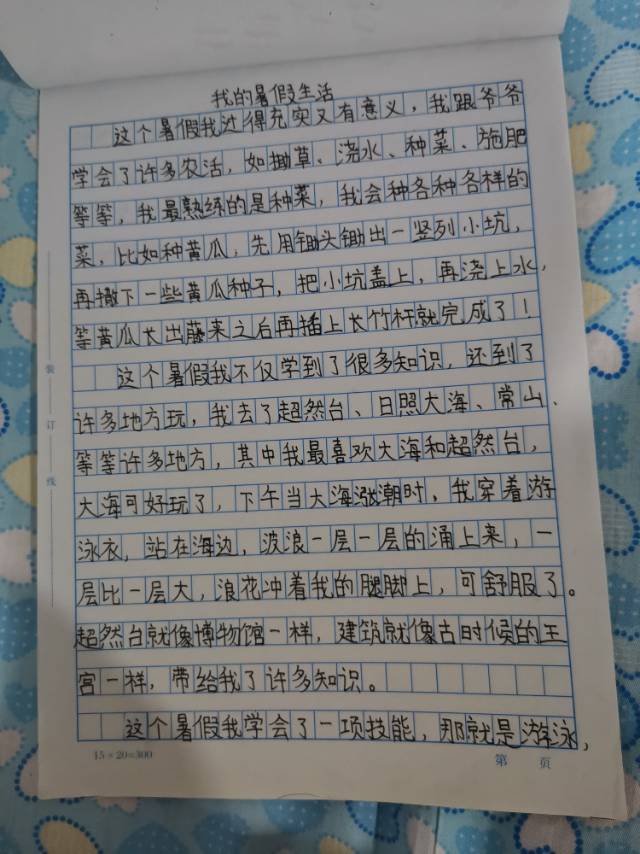 我的暑假生活
这个暑假我过得充实又有意义,我跟爷爷
学会了许多农活,如锄草、浇水、种菜、施肥
等等,我最熟练的是种菜,我会种各种各样的
菜,比如种黄瓜,先用锄头锄出一竖列小坑,
再撒下一些黄瓜种子,把小坑盖上,再浇上水,
等黄瓜长出藤来之后再插上长竹杆就完成了!
这个暑假我不仅学到了很多知识,还到了
许多地方玩,我去了超然台、日照大海、常山、
等等许多地方,其中我最喜欢大海和超然台,
大海可好玩了,下午当大海涨潮时,我穿着游
泳衣,站在海边,波浪一层一层的涌上来,一
层比一层大,浪花冲着我的腿脚上,可舒服了。
超然台就像博物馆一样,建筑就像古时候的王
宫一样,带给我了许多知识。
这个暑假我学会了一项技能,那就是游泳,
15×20=300 第 页
装
订
线